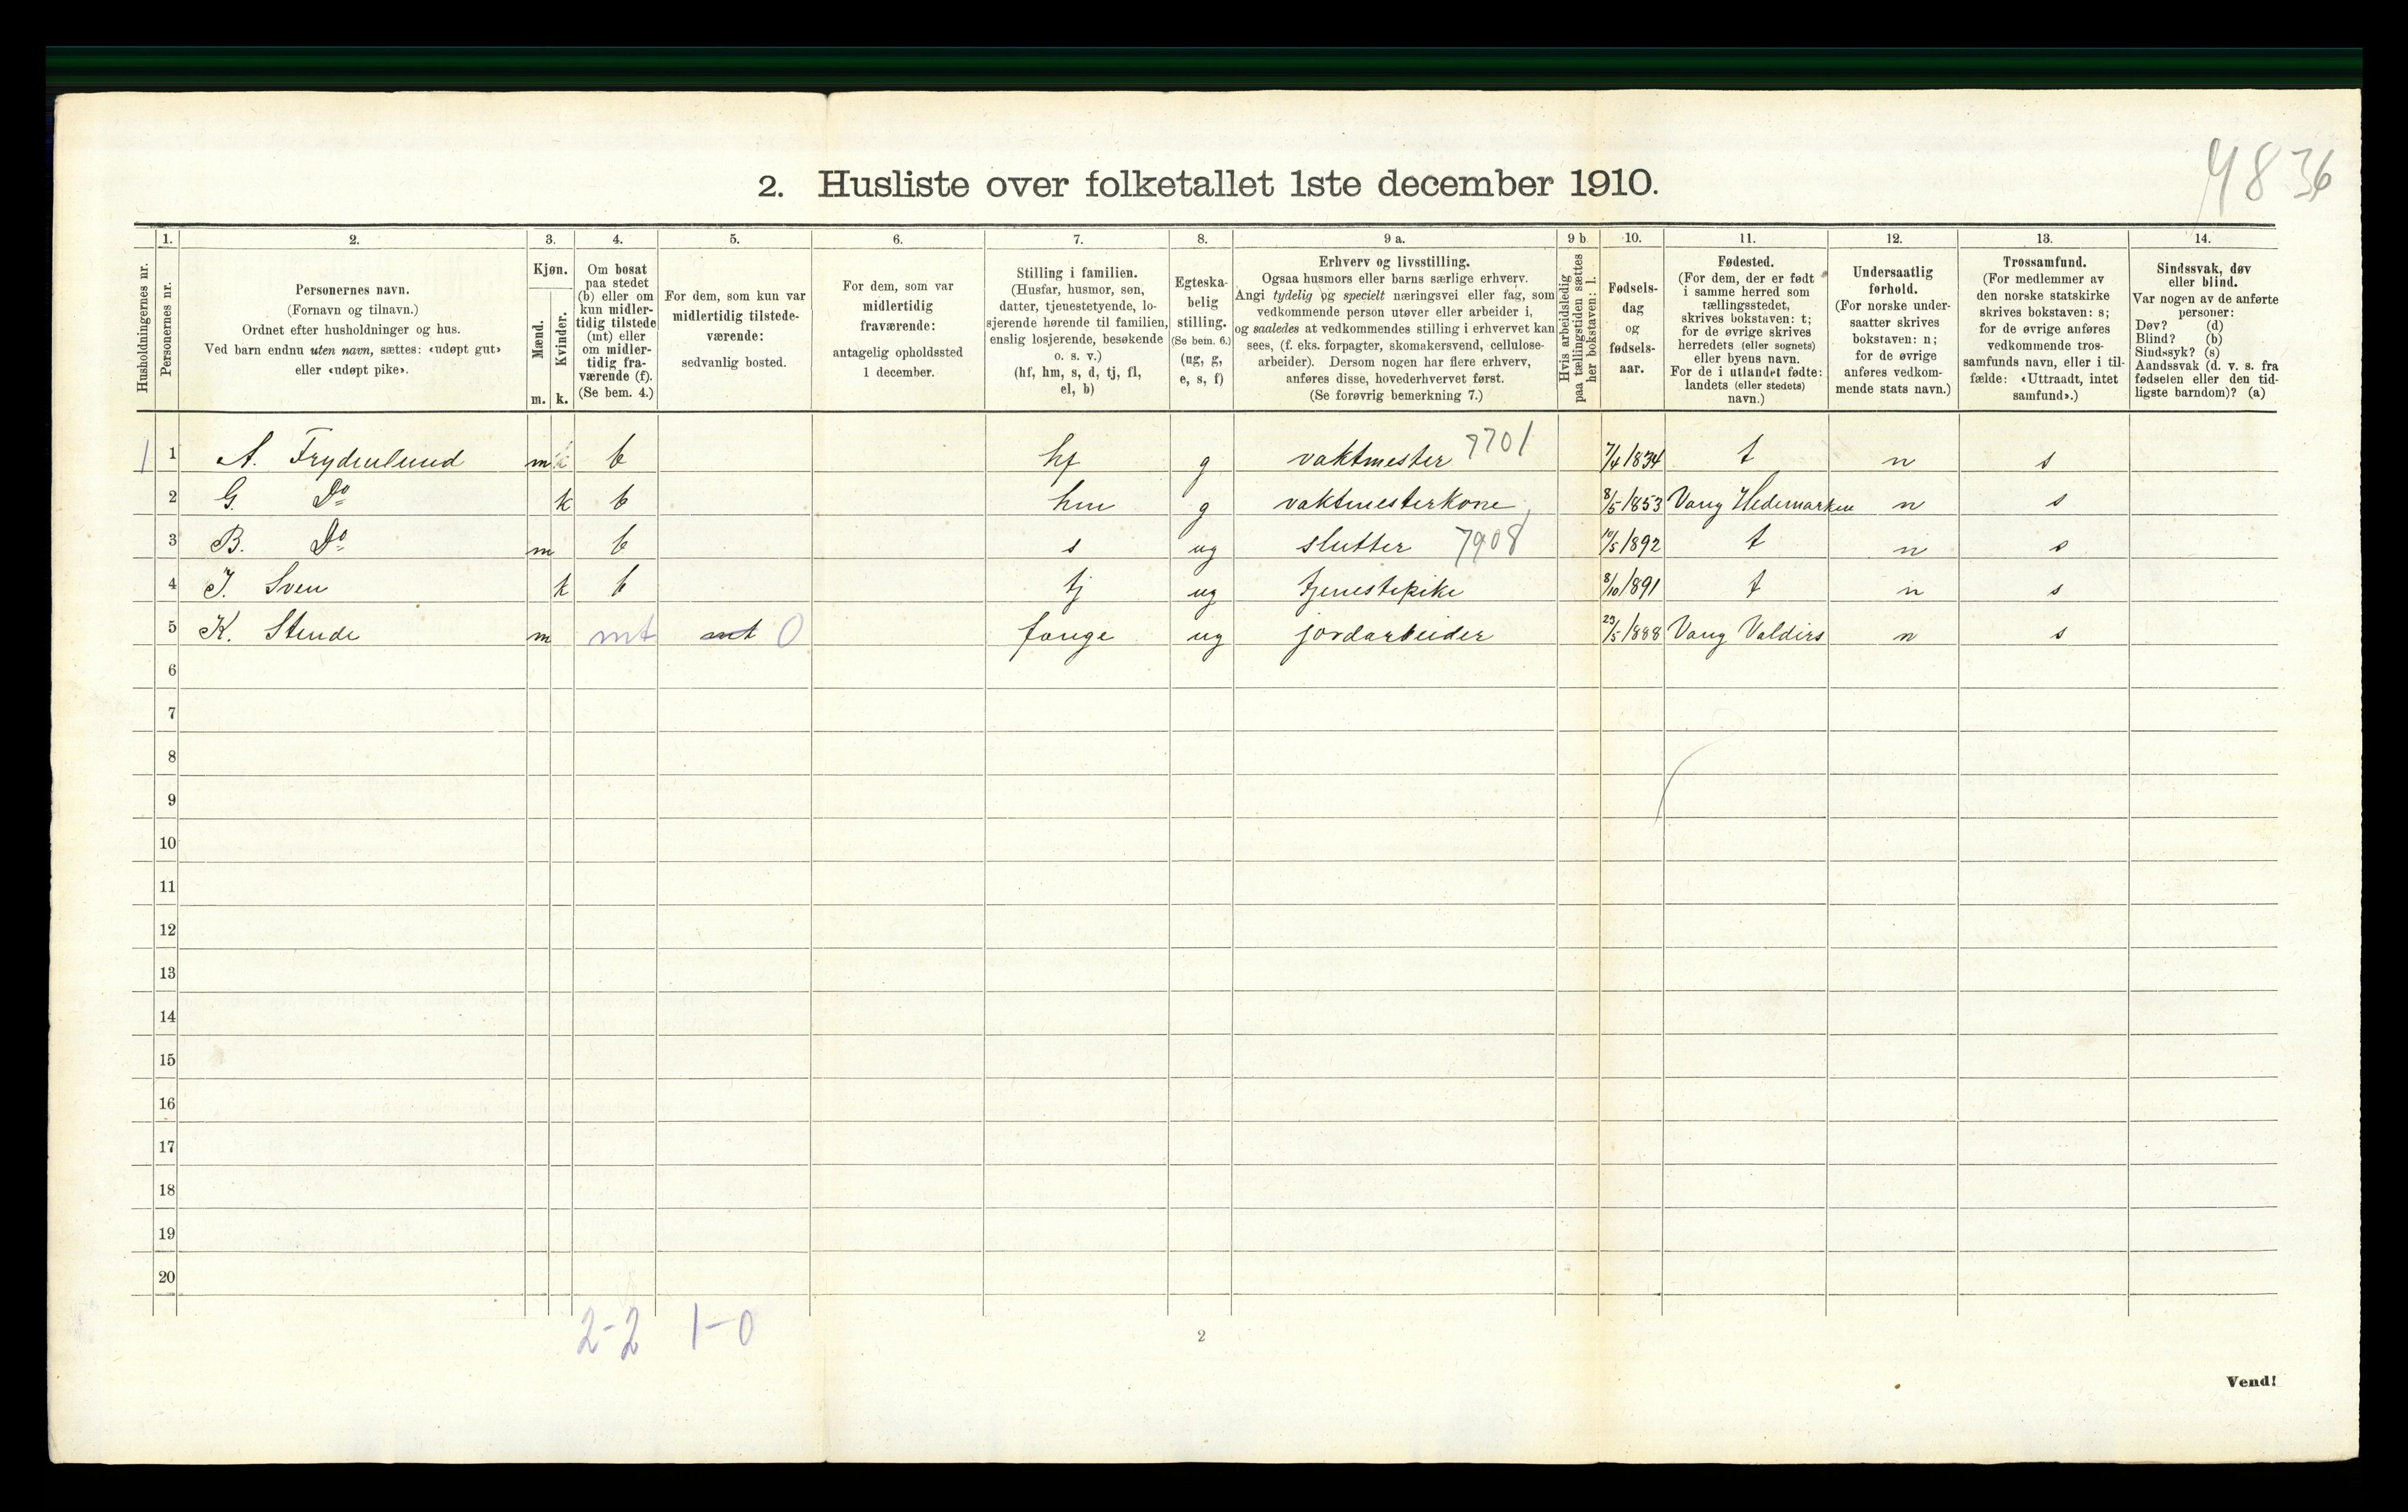 4836
2. Husliste over folketallet 1ste december 1910.
Husholdningernes nr.
1.
Personernes nr.
2.
Personernes navn.
(Fornavn og tilnavn.)
Ordnet efter husholdninger og hus.
Ved barn endnu uten navn, sættes: «udøpt gut»
eller «udøpt pike».
3.
Kjøn.
Mænd.
Kvinder.
m. k.
4.
Om bosat
paa stedet
(b) eller om
kun midler-
tidig tilstede
(mt) eller
om midler-
tidig fra-
værende (f).
(Se bem. 4.)
5.
For dem, som kun var
midlertidig tilstede-
værende:
sedvanlig bosted.
6.
For dem, som var
midlertidig
fraværende:
antagelig opholdssted
1 december.
7.
Stilling i familien.
(Husfar, husmor, søn,
datter, tjenestetyende, lo-
sjerende hørende til familien,
enslig losjerende, besøkende
o. s. v.)
(hf, hm, s, d, tj, fl,
el, b)
8.
Egteska-
belig
stilling.
(Se bem. 6.)
(ug, g,
e, s, f)
9 a.
Erhverv og livsstilling.
Ogsaa husmors eller barns særlige erhverv.
Angi tydelig og specielt næringsvei eller fag, som
vedkommende person utøver eller arbeider i,
og saaledes at vedkommendes stilling i erhvervet kan
sees, (f. eks. forpagter, skomakersvend, cellulose-
arbeider). Dersom nogen har flere erhverv,
anføres disse, hovederhvervet først.
(Se forøvrig bemerkning 7.)
9 b
Hvis arbeidsledig
paa tællingstiden sættes
her bokstaven: l.
10.
Fødsels-
dag
og
fødsels-
aar.
11.
Fødested.
(For dem, der er født
i samme herred som
tællingsstedet,
skrives bokstaven: t;
for de øvrige skrives
herredets (eller sognets)
eller byens navn.
For de i utlandet fødte:
landets (eller stedets)
navn.)
12.
Undersaatlig
forhold.
(For norske under-
saatter skrives
bokstaven: n;
for de øvrige
anføres vedkom-
mende stats navn.)
13.
Trossamfund.
(For medlemmer av
den norske statskirke
skrives bokstaven: s;
for de øvrige anføres
vedkommende tros-
samfunds navn, eller i til-
fælde: «Uttraadt, intet
samfund».)
14.
Sindssvak, døv
eller blind.
Var nogen av de anførte
personer:
Døv? (d)
Blind? (b)
Sindssyk? (s)
Aandssvak (d. v. s. fra
fødselen eller den tid-
ligste barndom)? (a)
1 1 A. Frydenlund m b hf g vaktmester 7701 7/4 1834 t n s
2 G. Do k b hm g vaktmesterkone 8/5 1853 Vang Hedemarken n s
3 B. Do m b s ug slutter 7908 10/5 1892 t n s
4 J. Sven k b tj ug tjenestepike 8/10 1891 t n s
5 K. Stende m mt mt 0 fange ug jordarbeider 23/5 1888 Vang Valdirs n s
6
7
8
9
10
11
12
13
14
15
16
17
18
19
20
2-2 1-0
2
Vend!